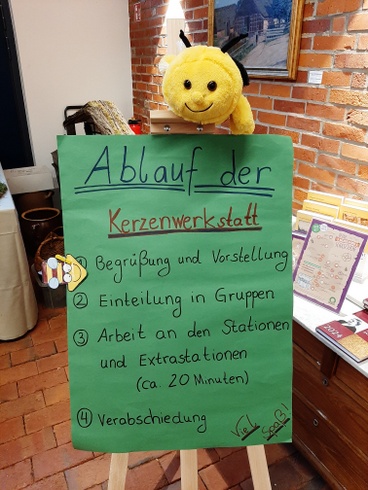 Ablauf der
Kerzenwerkstatt
① Begrüßung und Vorstellung
② Einteilung in Gruppen
③ Arbeit an den Stationen
und Extrastationen
(ca. 20 Minuten)
④ Verabschiedung
Viel Spaß!
2024